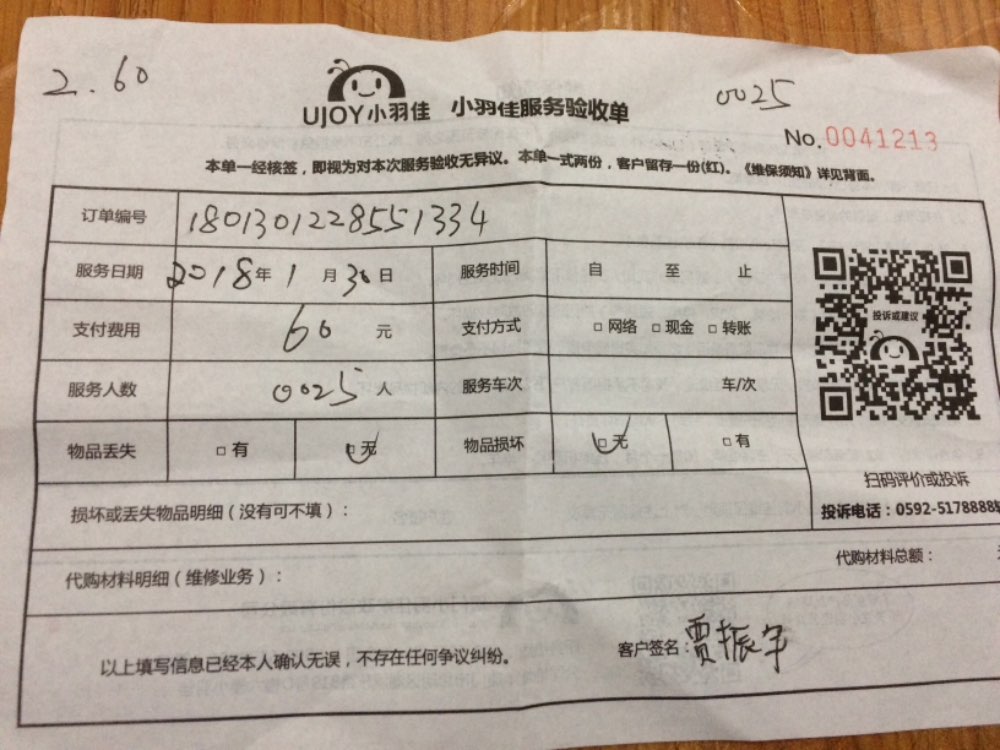 2.60
UJOY小羽佳 小羽佳服务验收单
0025
No.0041213
本单一经核签，即视为对本次服务验收无异议。本单一式两份，客户留存一份(红)。《维保须知》详见背面。
订单编号 1801301228551334
服务日期 2018年1月30日 服务时间 自 至 止
支付费用 60 元 支付方式 □网络 □现金 □转账
投诉或建议
服务人数 0025人 服务车次 车/次
物品丢失 □有 □无 物品损坏 □无 □有
扫码评价或投诉
损坏或丢失物品明细（没有可不填）：
投诉电话：0592-5178888
代购材料总额：
代购材料明细（维修业务）：
以上填写信息已经本人确认无误，不存在任何争议纠纷。
客户签名：贾振宇